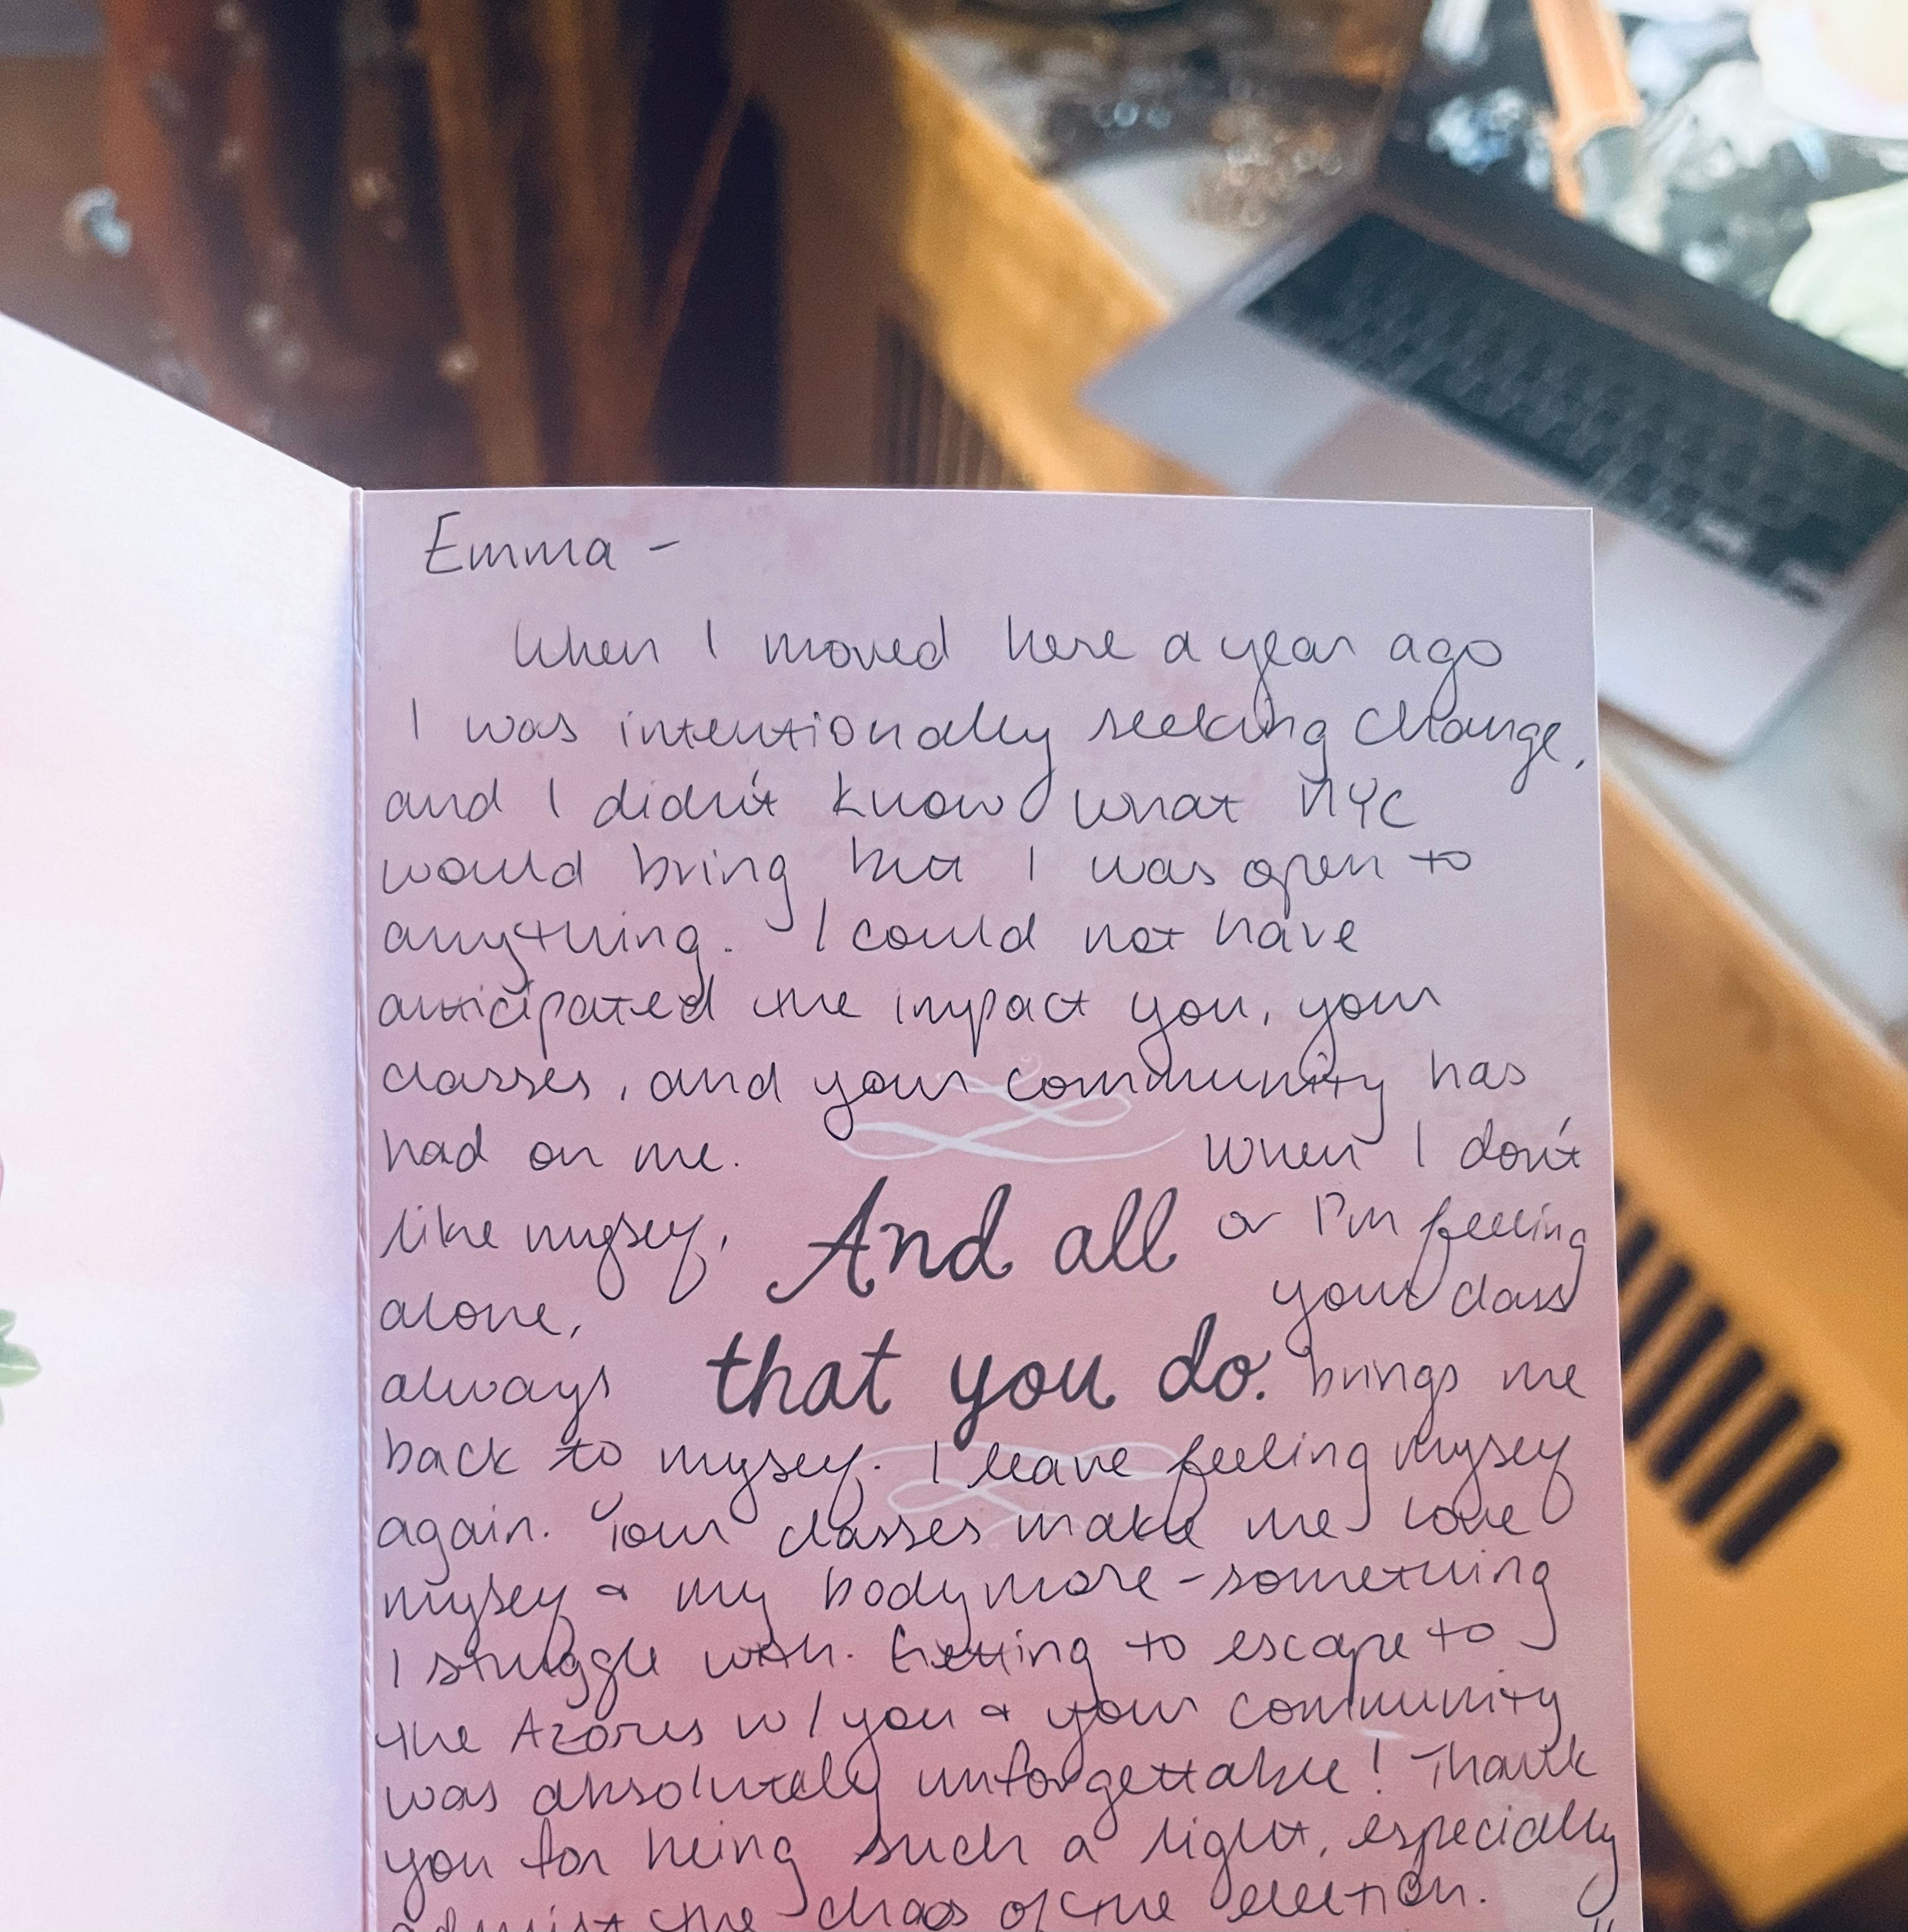 Emma -
When I moved here a year ago
I was intentionally seeking change,
and I didn't know what NYC
would bring but I was open to
anything. I could not have
anticipated the impact you, your
classes, and your community has
had on me. When I don't
like myself, And all or I'm feeling
alone, your class
always that you do. brings me
back to myself. I leave feeling myself
again. Your classes make me love
myself & my body more - something
I struggle with. Getting to escape to
the Azores w/ you & your community
was absolutely unforgettable! Thank
you for being such a light, especially
admist the chaos of the election.